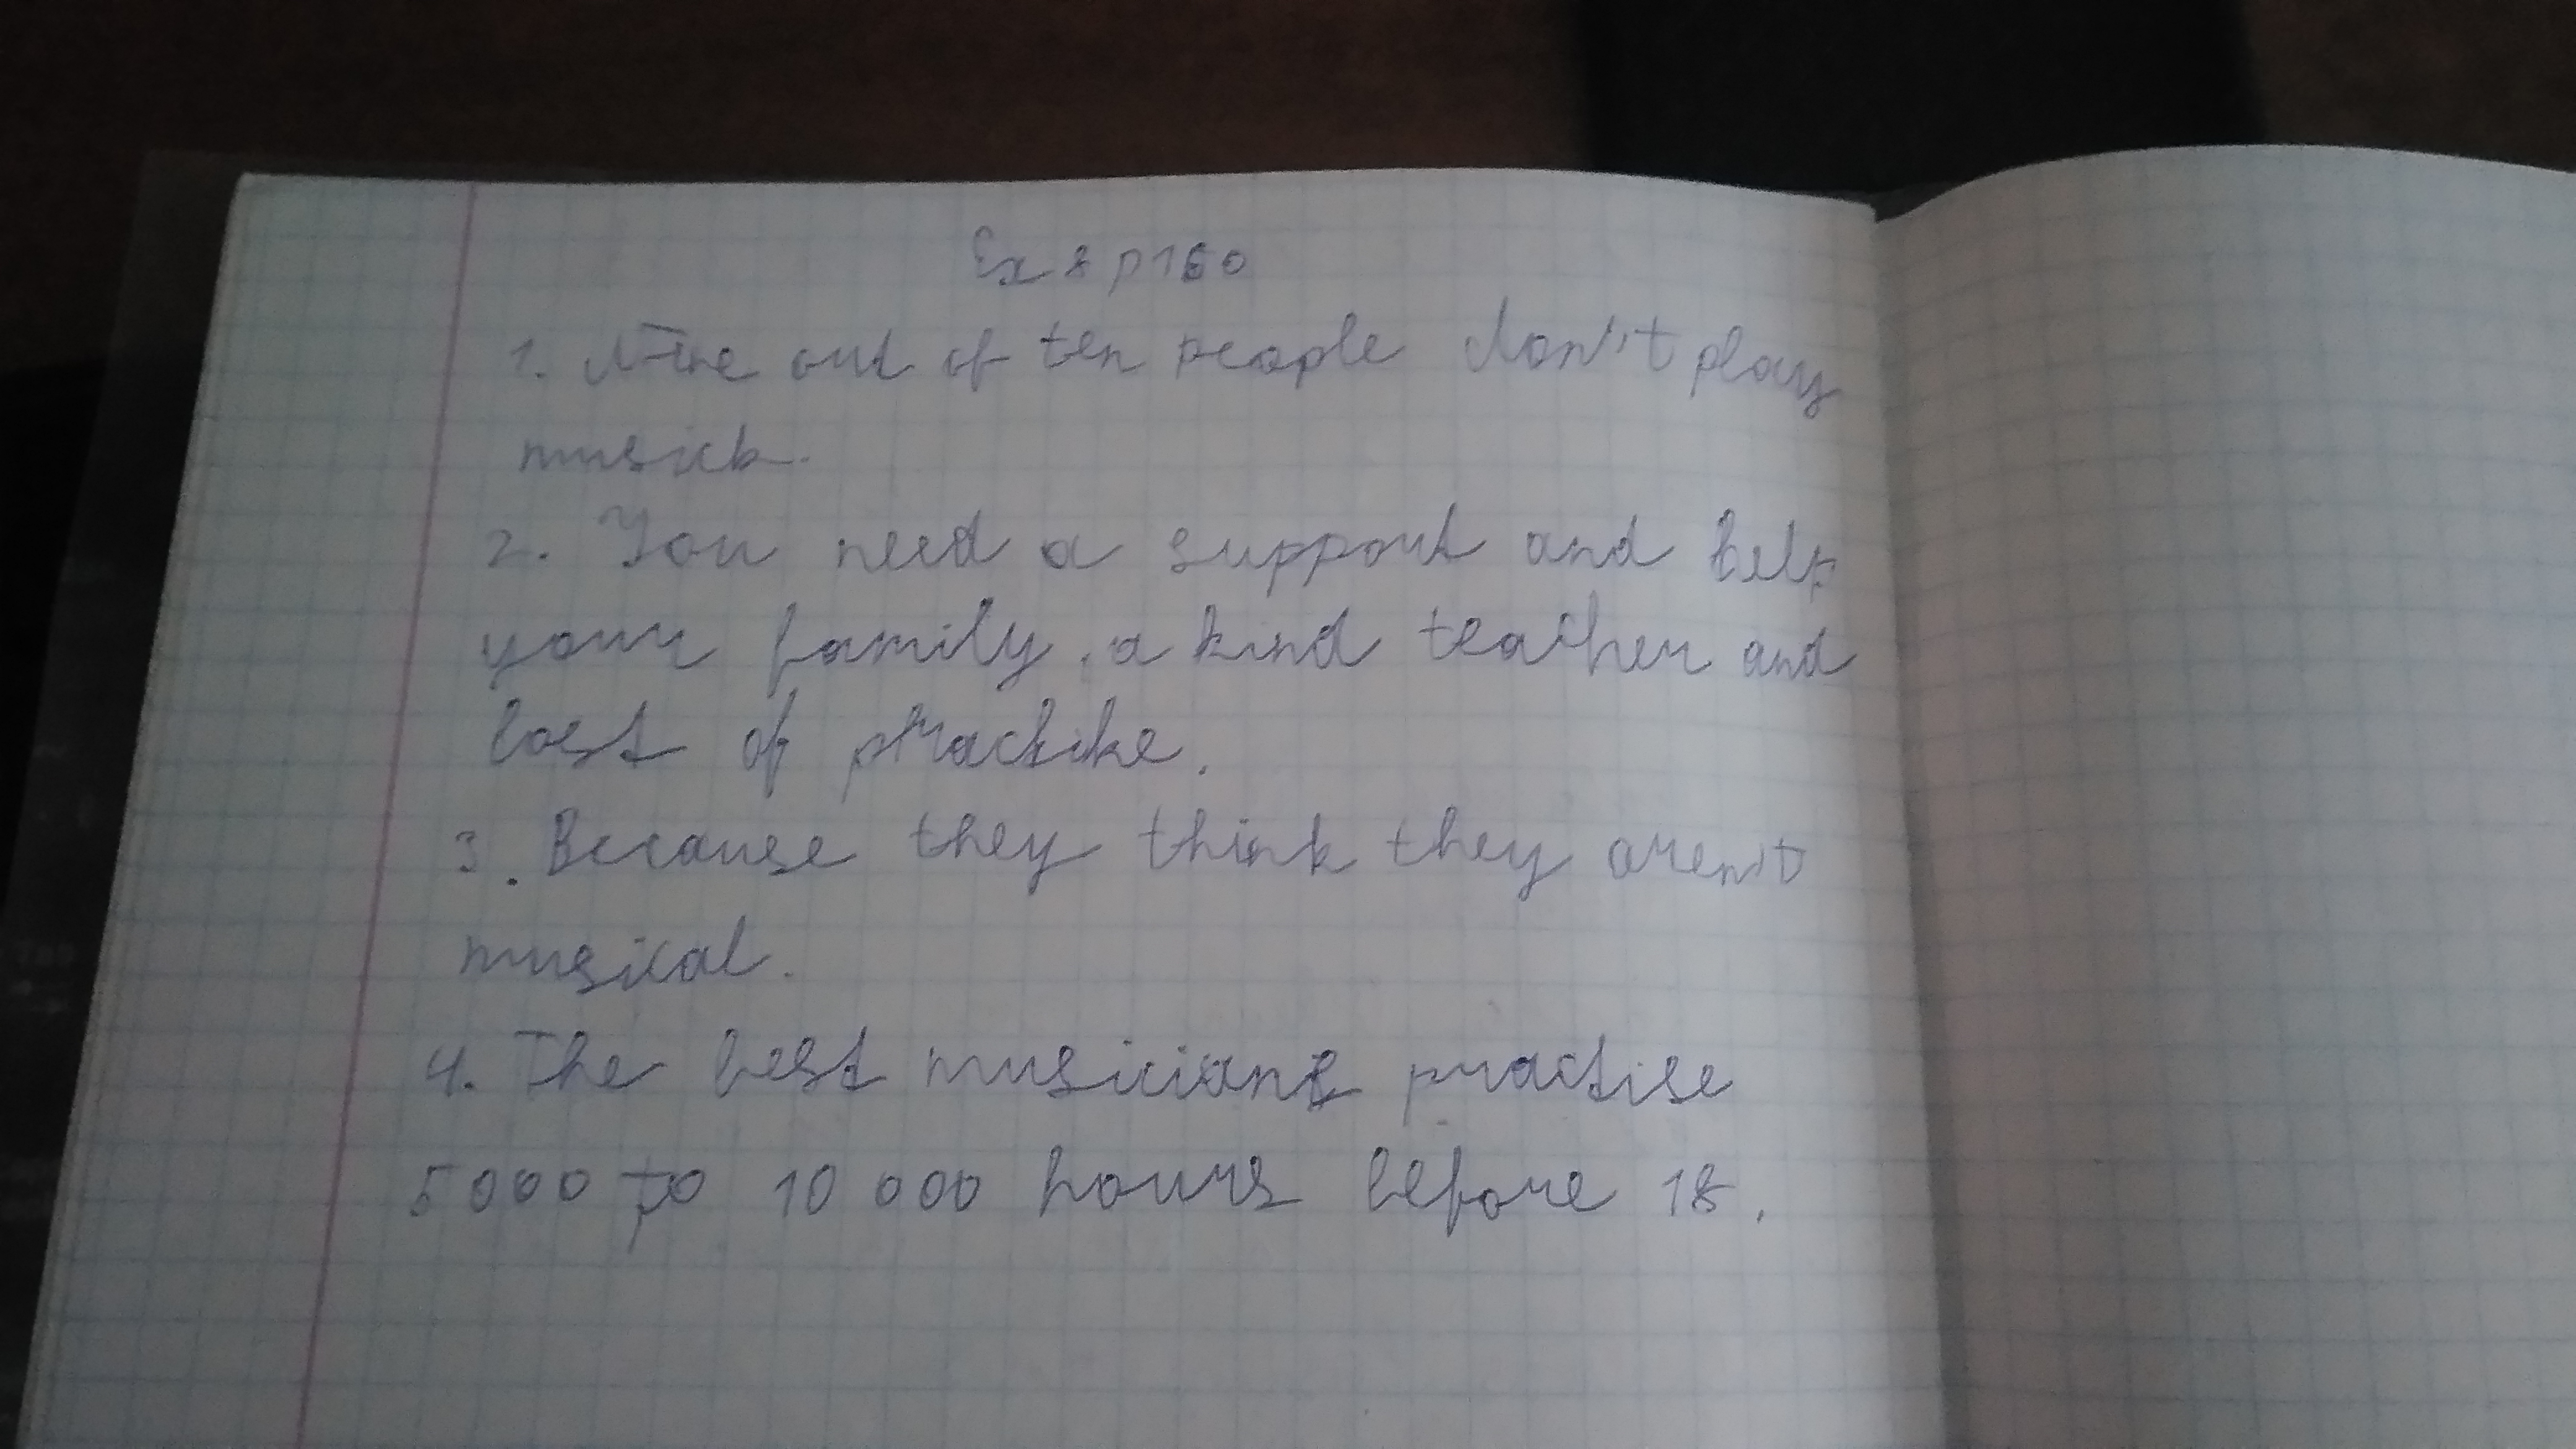 Ex 8 p160
1. Nine out of ten people don't play
musick.
2. You need a support and help
your family, a kind teacher and
lost of practike.
3. Because they think they aren't
musical.
4. The best musicians practise
5000 to 10 000 hours before 18.